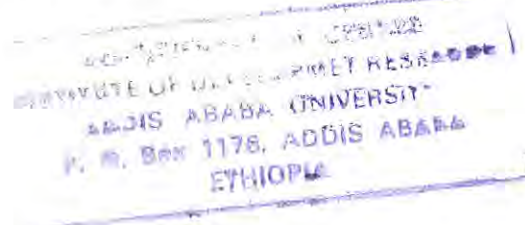 INSTITUTE OF DEVELOPMET RESEARCH
ADDIS ABABA UNIVERSITY
P. O. Box 1176, ADDIS ABABA
ETHIOPIA